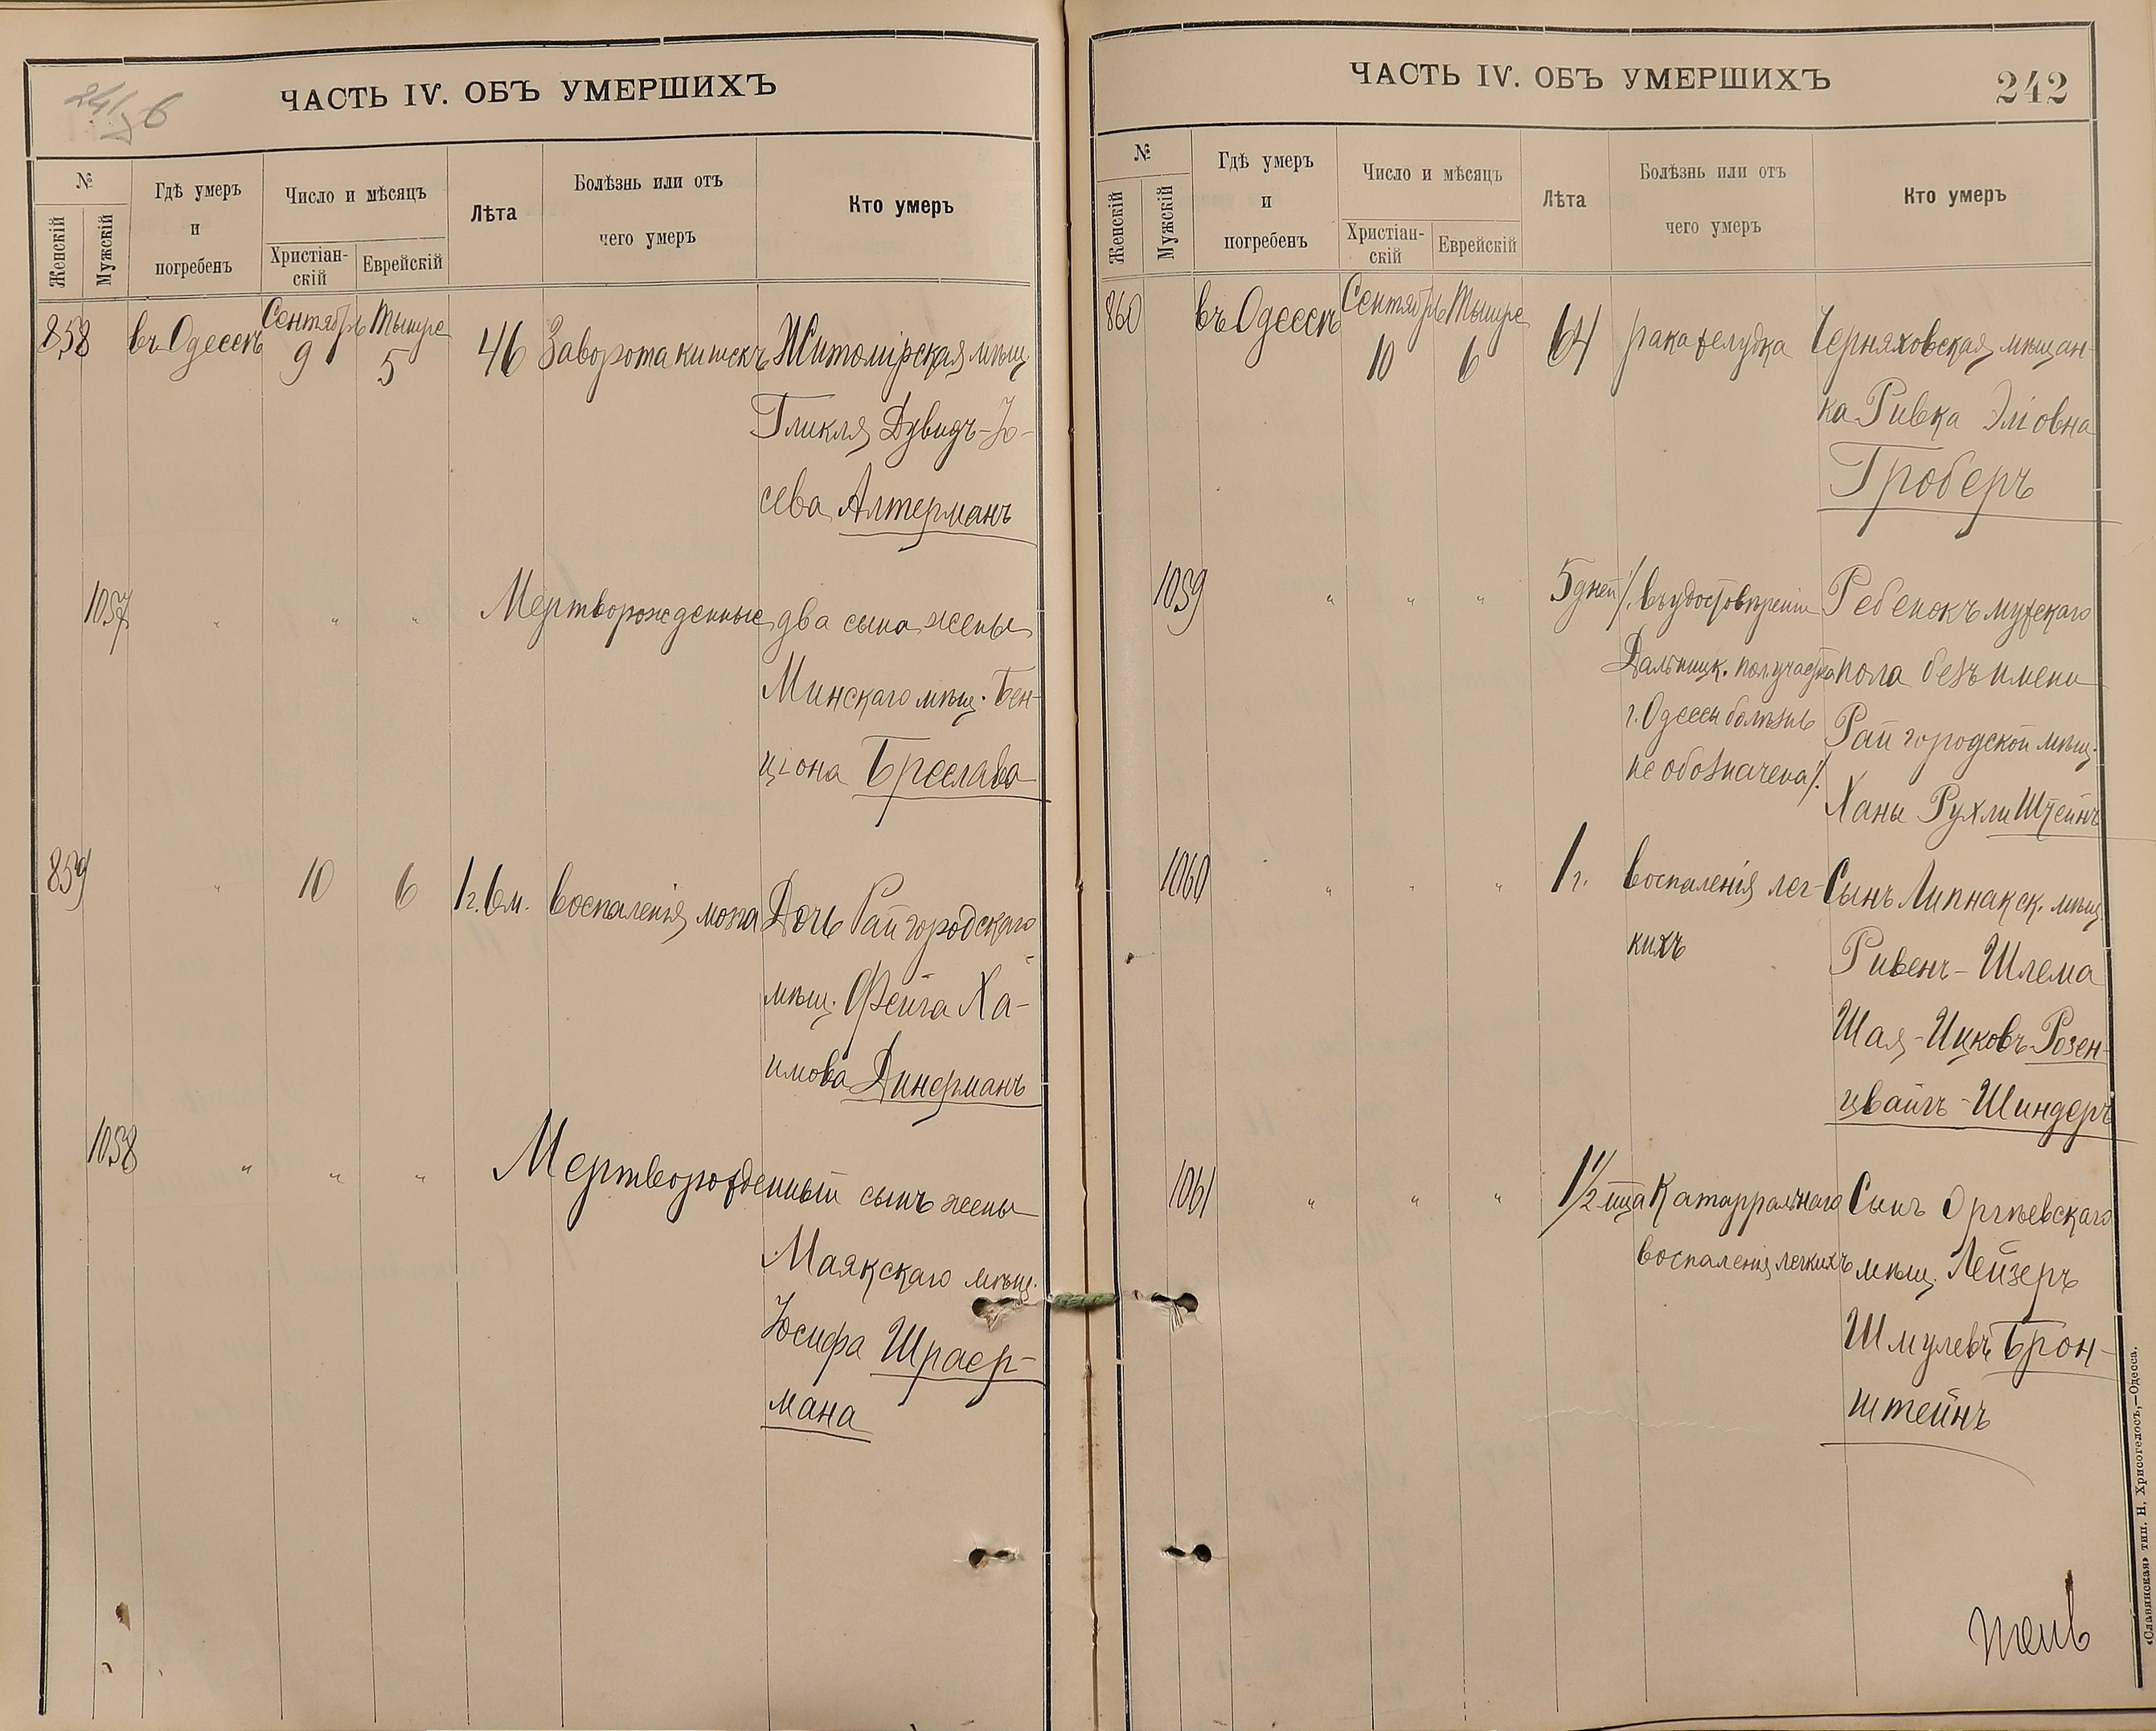 241 об
ЧАСТЬ IV. ОБЪ УМЕРШИХЪ
№
Женскій
Мужскій
Гдѣ умеръ
и
погребенъ
Число и мѣсяцъ
Христіан-
скій
Еврейскій
Лѣта
Болѣзнь или отъ
чего умеръ
Кто умеръ
858 въ Одессѣ Сентябрь 9 Тышре 5 46 Заворота кишекъ Житомірская мѣщ.
Гликля Дувидъ-Іо-
сева Алтерманъ
1057 " " " Мертворожденные два сына жены
Минскаго мѣщ. Бен-
ціона Бреслава
859 " 10 6 1г. 6м. воспаленія мозга Дочь Райгородскаго
мѣщ. Фейга Ха-
имова Динерманъ
1058 " " " Мертворожденный сынъ жены
Маякскаго мѣщ.
Іосифа Шраер-
мана
ЧАСТЬ IV. ОБЪ УМЕРШИХЪ
242
№
Женскій
Мужскій
Гдѣ умеръ
и
погребенъ
Число и мѣсяцъ
Христіан-
скій
Еврейскій
Лѣта
Болѣзнь или отъ
чего умеръ
Кто умеръ
860 въ Одессѣ Сентябрь 10 Тышре 6 64 рака желудка Черняховская мѣщан-
ка Ривка Эліовна
Гроберъ
1059 " " " 5 дней /. въ удостовѣреніи Ребенокъ мужскаго
Дальницк. получастка пола безъ имени
г. Одессы болѣзнь Райгородской мѣщ.
не обозначена /. Ханы Рухли Штейнъ
1060 " " " 1 г. воспаленія лег- Сынъ Липнакск. мѣщ.
кихъ Ривенъ-Шлема
Шая-Ицковъ Розен-
цвайгъ-Шиндеръ
1061 " " " 1 1/2 мца Катарральнаго Сынъ Оргѣевскаго
воспаленія легкихъ мѣщ. Лейзеръ
Шмулевъ Брон-
штейнъ
«Славянская» тип. Н. Хрисогелосъ,—Одесса.